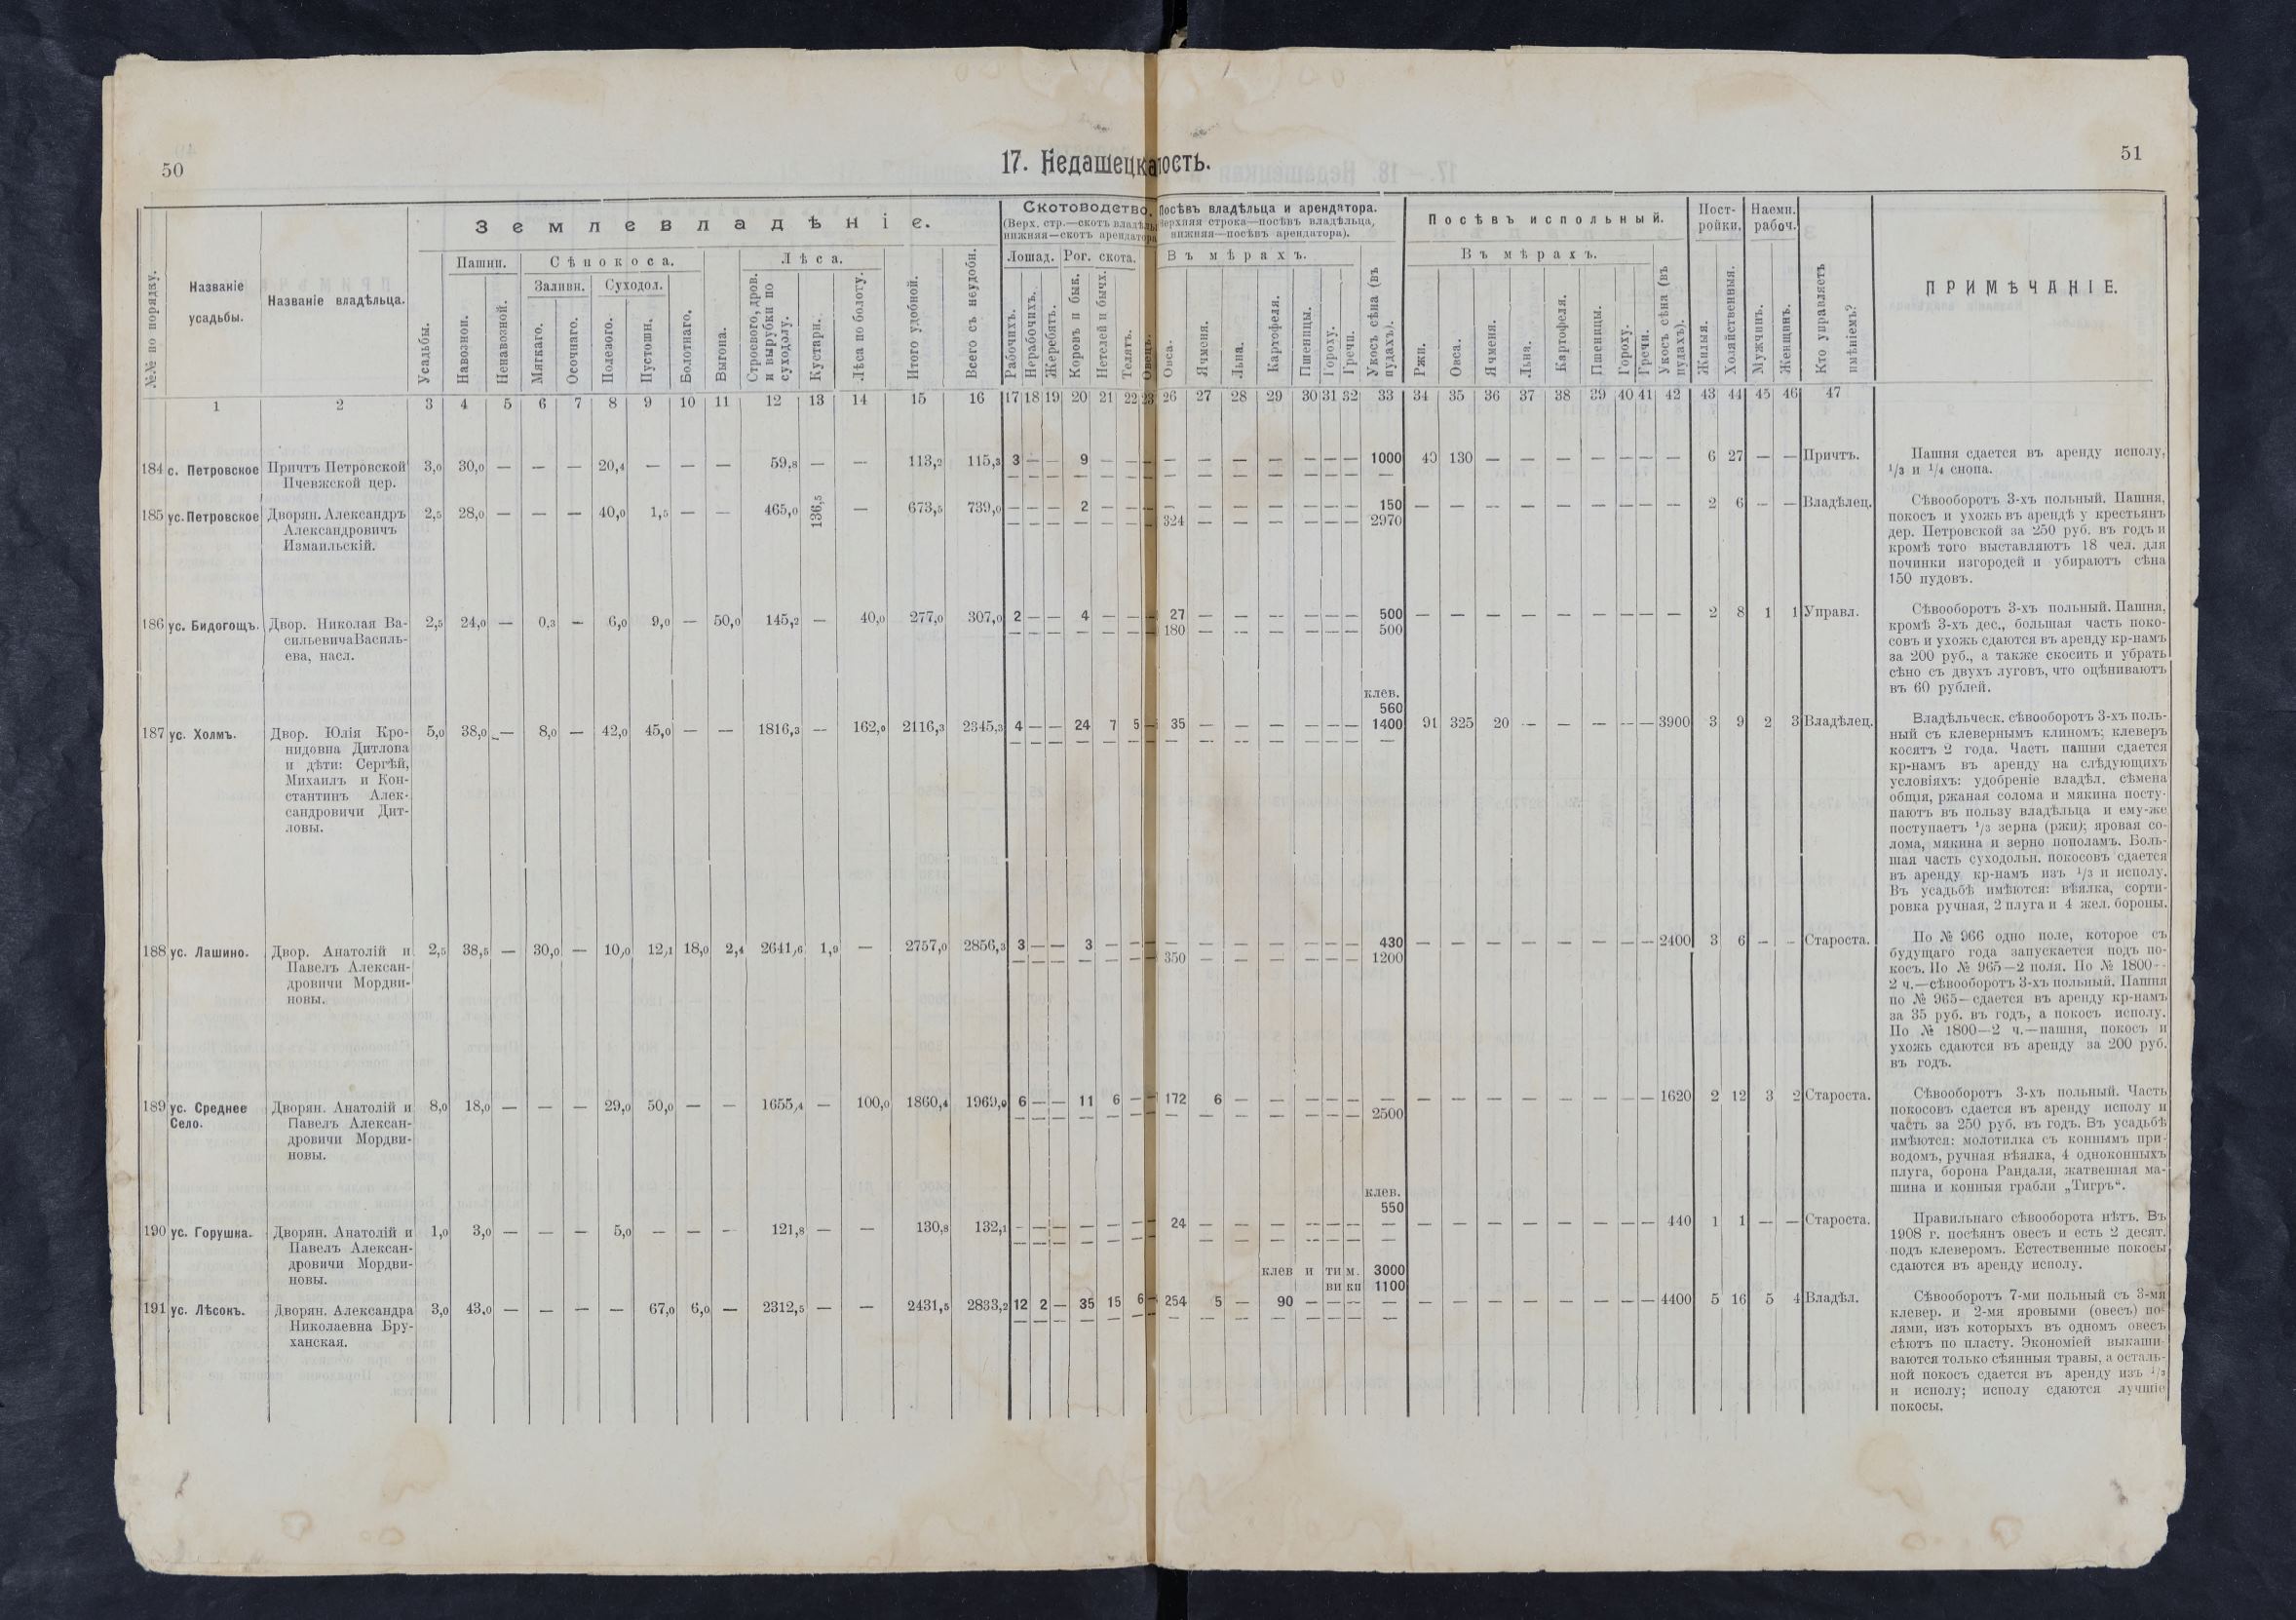 50
51
17. Недашецка
лость.
№№ по порядку.
Названіе
усадьбы.
Названіе владѣльца.
Землевладѣніе.
Усадьбы.
Пашни.
Навозной.
Ненавозной.
Сѣнокоса.
Заливн.
Мягкаго.
Осочнаго.
Суходол.
Полевого.
Пустошн.
Болотнаго.
Выгона.
Лѣса.
Строевого, дров.
и вырубки по
суходолу.
Кустарн.
Лѣса по болоту.
Итого удобной.
Всего съ неудобн.
Скотоводство.
(Верх. стр.—скотъ владѣль
нижняя—скотъ арендатора
Лошад.
Рабочихъ.
Нерабочихъ.
Жеребятъ.
Рог. скота.
Коровъ и бык.
Нетелей и бычх.
Телятъ.
Овецъ.
Посѣвъ владѣльца и арендатора.
верхняя строка—посѣвъ владѣльца,
нижняя—посѣвъ арендатора).
Въ мѣрахъ.
Овса.
Ячменя.
Льна.
Картофеля.
Пшеницы.
Гороху.
Гречи.
Укосъ сѣна (въ
пудахъ).
Посѣвъ испольный.
Въ мѣрахъ.
Ржи.
Овса.
Ячменя.
Льна.
Картофеля.
Пшеницы.
Гороху.
Гречи.
Укосъ сѣна (въ
пудахъ).
Пост-
ройки.
Жилыя.
Хозяйственныя.
Наемн.
рабоч.
Мужчинъ.
Женщинъ.
Кто управляетъ
имѣніемъ?
ПРИМѢЧАНІЕ.
1 2 3 4 5 6 7 8 9 10 11 12 13 14 15 16 17 18 19 20 21 22 23 26 27 28 29 30 31 32 33 34 35 36 37 38 39 40 41 42 43 44 45 46 47
184 с. Петровское Причтъ Петровской 3,0 30,0 — — — 20,4 — — — 59,8 — — 113,2 115,3 3 — — 9 — — — — — — — — — — 1000 40 130 — — — — — — — 6 27 — — Причтъ.
Пчевжской цер.
— — — — — — — — — — — — — — —
Пашня сдается въ аренду исполу,
1/3 и 1/4 снопа.
185 ус. Петровское Дворян. Александръ 2,5 28,0 — — — 40,0 1,5 — — 465,0 136,5 — 673,5 739,0 — — — 2 — — — — — — — — — — 150 — — — — — — — — — 2 6 — — Владѣлец.
Александровичъ
Измаильскій.
— — — — — — — 324 — — — — — — 2970
Сѣвооборотъ 3-хъ польный. Пашня,
покосъ и ухожь въ арендѣ у крестьянъ
дер. Петровской за 250 руб. въ годъ и
кромѣ того выставляютъ 18 чел. для
починки изгородей и убираютъ сѣна
150 пудовъ.
186 ус. Бидогощъ. Двор. Николая Ва- 2,5 24,0 — 0,3 — 6,0 9,0 — 50,0 145,2 — 40,0 277,0 307,0 2 — — 4 — — — 27 — — — — — — 500 — — — — — — — — — 2 8 1 1 Управл.
сильевича Василь-
ева, насл.
— — — — — — — 180 — — — — — — 500
Сѣвооборотъ 3-хъ польный. Пашня,
кромѣ 3-хъ дес., большая часть поко-
совъ и ухожь сдаются въ аренду кр-намъ
за 200 руб., а также скосить и убрать
сѣно съ двухъ луговъ, что оцѣниваютъ
въ 60 рублей.
клев.
560
187 ус. Холмъ. Двор. Юлія Кро- 5,0 38,0 — 8,0 — 42,0 45,0 — — 1816,3 — 162,0 2116,3 2345,3 4 — — 24 7 5 — 35 — — — — — — 1400 91 325 20 — — — — — 3900 3 9 2 3 Владѣлец.
нидовна Дитлова
и дѣти: Сергѣй,
Михаилъ и Кон-
стантинъ Алек-
сандровичи Дит-
ловы.
— — — — — — — — — — — — — —
Владѣльческ. сѣвооборотъ 3-хъ поль-
ный съ клевернымъ клиномъ; клеверъ
косятъ 2 года. Часть пашни сдается
кр-намъ въ аренду на слѣдующихъ
условіяхъ: удобреніе владѣл. сѣмена
общія, ржаная солома и мякина посту-
паютъ въ пользу владѣльца и ему-же
поступаетъ 1/3 зерна (ржи); яровая со-
лома, мякина и зерно пополамъ. Боль-
шая часть суходольн. покосовъ сдается
въ аренду кр-намъ изъ 1/3 и исполу.
Въ усадьбѣ имѣются: вѣялка, сорти-
ровка ручная, 2 плуга и 4 жел. бороны.
188 ус. Лашино. Двор. Анатолій и 2,5 38,5 — 30,0 — 10,0 12,1 18,0 2,4 2641,6 1,9 — 2757,0 2856,3 3 — — 3 — — — — — — — — — — 430 — — — — — — — — 2400 3 6 — — Староста.
Павелъ Алексан-
дровичи Мордви-
новы.
— — — — — — — 350 — — — — — — 1200
По № 966 одно поле, которое съ
будущаго года запускается подъ по-
косъ. По № 965—2 поля. По № 1800—
2 ч.—сѣвооборотъ 3-хъ польный. Пашня
по № 965—сдается въ аренду кр-намъ
за 35 руб. въ годъ, а покосъ исполу.
По № 1800—2 ч.—пашня, покосъ и
ухожь сдаются въ аренду за 200 руб.
въ годъ.
189 ус. Среднее Дворян. Анатолій и 8,0 18,0 — — — 29,0 50,0 — — 1655,4 — 100,0 1860,4 1969,0 6 — — 11 6 — — 172 6 — — — — — — — — — — — — — — 1620 2 12 3 2 Староста.
Село. Павелъ Алексан-
дровичи Мордви-
новы.
— — — — — — — — — — — — — — 2500
Сѣвооборотъ 3-хъ польный. Часть
покосовъ сдается въ аренду исполу и
часть за 250 руб. въ годъ. Въ усадьбѣ
имѣются: молотилка съ коннымъ при-
водомъ, ручная вѣялка, 4 одноконныхъ
плуга, борона Рандаля, жатвенная ма-
шина и конныя грабли „Тигръ“.
клев.
550
190 ус. Горушка. Дворян. Анатолій и 1,0 3,0 — — — 5,0 — — — 121,8 — — 130,8 132,1 — — — — — — — 24 — — — — — — — — — — — — — — — 440 1 1 — — Староста.
Павелъ Алексан-
дровичи Мордви-
новы.
— — — — — — — — — — — — — —
Правильнаго сѣвооборота нѣтъ. Въ
1908 г. посѣянъ овесъ и есть 2 десят.
подъ клеверомъ. Естественные покосы
сдаются въ аренду исполу.
клев и тим. 3000
вики 1100
191 ус. Лѣсокъ. Дворян. Александра 3,0 43,0 — — — — 67,0 6,0 — 2312,5 — — 2431,5 2833,2 12 2 — 35 15 6 — 254 5 — 90 — — — — — — — — — — — — 4400 5 16 5 4 Владѣл.
Николаевна Бру-
ханская.
— — — — — — — — — — — — — —
Сѣвооборотъ 7-ми польный съ 3-мя
клевер. и 2-мя яровыми (овесъ) по-
лями, изъ которыхъ въ одномъ овесъ
сѣютъ по пласту. Экономіей выкаши-
ваются только сѣянныя травы, а осталь-
ной покосъ сдается въ аренду изъ 1/3
и исполу; исполу сдаются лучшіе
покосы.